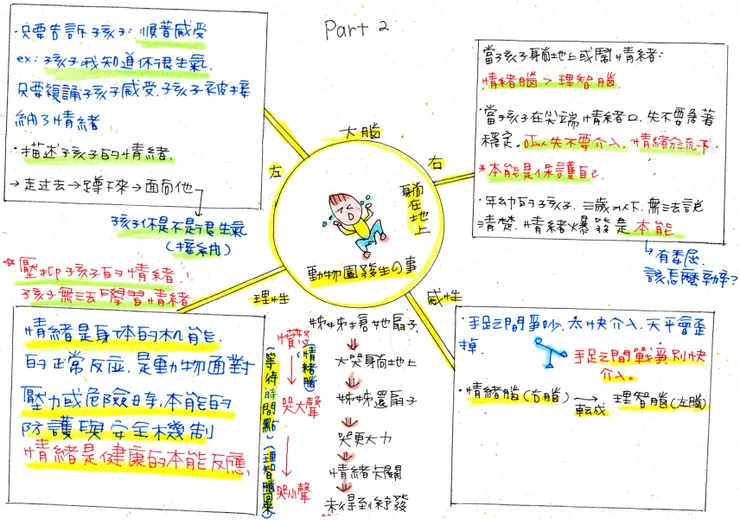 Part 2
·只要告訴孩子:順著感受
ex:孩子我知道你很生氣.
只要複誦孩子感受,孩子被接
納了情緒
·描述孩子的情緒.
→走過去→蹲下來→面向他
孩子你是不是很生氣
(接納)
當孩子躺地上或鬧情緒:
情緒腦>理智腦
·當孩子在尖端情緒口.先不要急著
穩定.所以先不要介入.情緒紓流下.
*本能是保護自己.
·年幼的孩子.三歲以下.無法說
清楚.情緒爆發是本能
有委屈.
該怎麼勸解?
大腦
左
右
躺在地上
動物園發生の事
理性
感性
*壓抑孩子的情緒.!
孩子無法學習情緒
情緒是身体的机能.
的正常反应.是動物面對
壓力或危險時.本能的
防護與安全機制
情緒是健康的本能反應.
(等待時間點)(理智腦回來)
(情緒腦)
憤怒
哭大聲
哭小聲
姊姊搶她扇子
大哭躺地上
姊姊還扇子
哭更大力
情緒失關
未得到紓發
·手足之間爭吵.太快介入.天平會歪
掉.
手足之間戰爭別快
介入。
·情緒腦(右腦) → 理智腦(左腦)
轉成